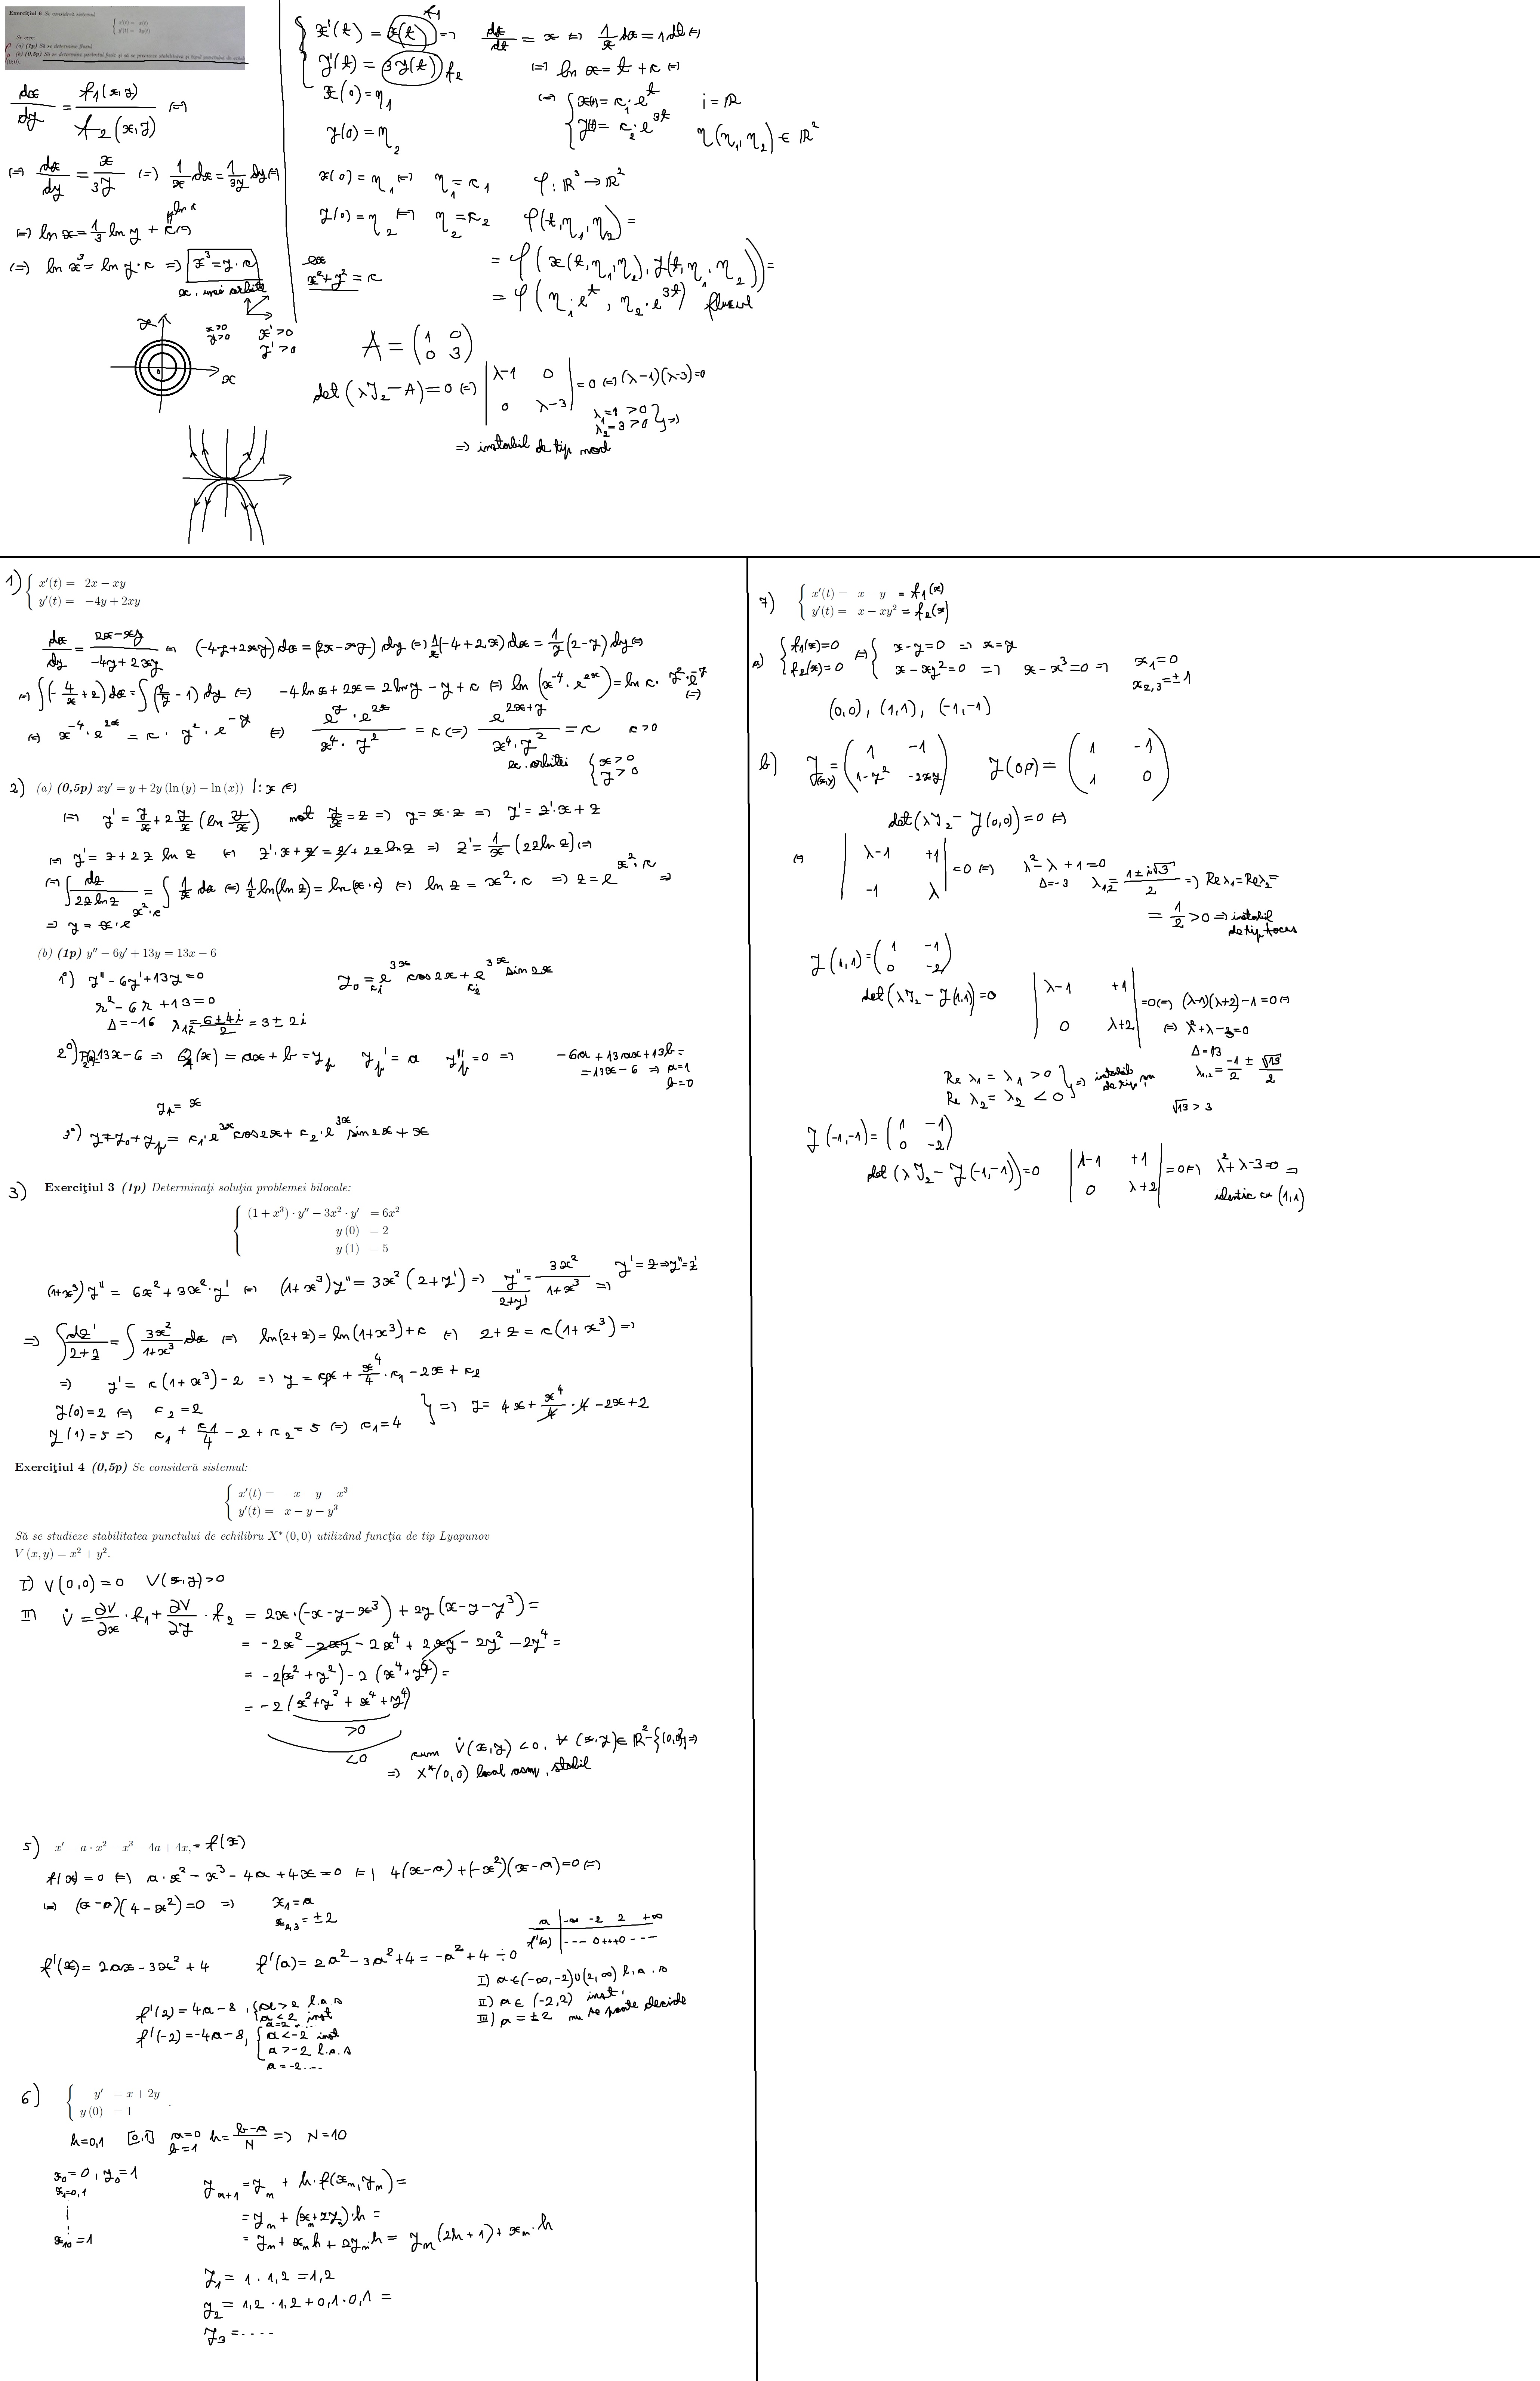 Exercițiul 6 Se consideră sistemul
{ x'(t) = x(t)
y'(t) = 3y(t)
Se cere:
(a) (1p) Să se determine fluxul
(b) (0,5p) Să se determine portretul fazic și să se precizeze stabilitatea și tipul punctului de echilibru
(0,0).
dx/dy = f1(x,y)/f2(x,y) (=)
(=) dx/dy = x/3y (=) 1/x dx = 1/3y dy (=)
(=) ln x = 1/3 ln y + c (=)
ln c
(=) ln x³ = ln y·c => x³ = y·c
ec. unei orbite
x>0
y>0
x'>0
y'>0
x
0
x
{ x'(t) = x(t) f1 (=) dx/dt = x (=) 1/x dx = 1dt (=)
y'(t) = 3y(t) f2 (=) ln x = t + c (=)
x(0) = η1
y(0) = η2
(=) { x(t) = c1·e^t i = ℝ
y(t) = c2·e^3t η(η1,η2) ∈ ℝ²
x(0) = η1 (=) η1 = c1 φ: ℝ³ → ℝ²
y(0) = η2 (=) η2 = c2 φ(t,η1,η2) =
ex
x²+y² = c
= φ(x(t,η1,η2), y(t,η1,η2)) =
= φ(η1·e^t, η2·e^3t) fluxul
A = (1 0
0 3)
det(λI2 − A) = 0 (=) |λ−1 0
0 λ−3| = 0 (=) (λ−1)(λ−3)=0
λ1=1 >0
λ2=3 >0 } =>
=> instabil de tip nod
1) { x'(t) = 2x − xy
y'(t) = −4y + 2xy
dx/dy = 2x−xy/−4y+2xy (=) (−4y+2xy)dx = (2x−xy)dy (=) 1/x(−4+2x)dx = 1/y(2−y)dy (=)
(=) ∫(−4/x+2)dx = ∫(2/y −1)dy (=) −4 ln x + 2x = 2 ln y − y + c (=) ln(x^−4·e^2x) = ln c·y²·e^−y (=)
(=) x^−4·e^2x = c·y²·e^−y (=) e^y·e^2x/x⁴·y² = c (=) e^2x+y/x⁴·y² = c c>0
ec. orbitei { x>0
y>0
2) (a) (0,5p) xy' = y + 2y (ln (y) − ln (x)) |:x (=)
(=) y' = y/x + 2y/x (ln y/x) not y/x = z => y = x·z => y' = z'·x + z
(=) y' = z + 2z ln z (=) z'·x + z = z + 2z ln z => z' = 1/x (2z ln z) (=)
(=) ∫dz/2z ln z = ∫1/x dx (=) 1/2 ln(ln z) = ln(x·c) (=) ln z = x²·c => z = e^x²·c =>
=> y = x·e^x²·c
(b) (1p) y'' − 6y' + 13y = 13x − 6
1°) y'' − 6y' + 13y = 0 y0 = c1·e^3x cos 2x + c2·e^3x sin 2x
r² − 6r + 13 = 0
Δ = −16 λ1,2 = 6±4i/2 = 3 ± 2i
2°) 13x − 6 => Q1(x) = ax + b = yp yp' = a yp'' = 0 => −6a + 13ax + 13b =
= 13x − 6 => a=1
b=0
yp = x
3°) y = y0 + yp = c1·e^3x cos 2x + c2·e^3x sin 2x + x
3) Exercițiul 3 (1p) Determinați soluția problemei bilocale:
{ (1 + x³) · y'' − 3x² · y' = 6x²
y (0) = 2
y (1) = 5
(1+x³)y'' = 6x² + 3x²·y' (=) (1+x³)y'' = 3x²(2+y') => y''/2+y' = 3x²/1+x³ => y' = z => y'' = z'
=> ∫dz'/2+z = ∫3x²/1+x³ dx (=) ln(2+z) = ln(1+x³)+c (=) 2+z = c(1+x³) =>
=> y' = c(1+x³) − 2 => y = c1x + x⁴/4·c1 − 2x + c2
y(0)=2 (=) c2=2
y(1)=5 => c1 + c1/4 − 2 + c2 = 5 (=) c1=4 } => y = 4x + x⁴/4·4 − 2x + 2
Exercițiul 4 (0,5p) Se consideră sistemul:
{ x'(t) = −x − y − x³
y'(t) = x − y − y³
Să se studieze stabilitatea punctului de echilibru X* (0, 0) utilizând funcția de tip Lyapunov
V (x, y) = x² + y².
I) V(0,0) = 0 V(x,y)>0
II) V̇ = ∂V/∂x·f1 + ∂V/∂y·f2 = 2x·(−x−y−x³) + 2y(x−y−y³) =
= −2x² − 2xy − 2x⁴ + 2xy − 2y² − 2y⁴ =
= −2(x²+y²) − 2(x⁴+y⁴) =
= −2(x²+y²+x⁴+y⁴)
>0
<0
cum V̇(x,y) <0, ∀ (x,y) ∈ ℝ²−{(0,0)} =>
=> X*(0,0) local asim. stabil
5) x' = a · x² − x³ − 4a + 4x, = f(x)
f(x)=0 (=) a·x² − x³ − 4a + 4x = 0 (=) 4(x−a)+(−x²)(x−a)=0 (=)
(=) (x−a)(4−x²)=0 => x1 = a
x2,3 = ±2
a | −∞ −2 2 +∞
f'(a) | −−− 0 +++ 0 −−−
f'(x) = 2ax − 3x² + 4 f'(a) = 2a² − 3a² + 4 = −a² + 4 ÷ 0
I) a∈(−∞,−2)∪(2,∞) l.a.s
II) a∈(−2,2) inst.
III) a = ±2 nu se poate decide
f'(2) = 4a − 8, { a>2 l.a.s
a<2 inst
a=2 ...
f'(−2) = −4a − 8, { a<−2 inst
a>−2 l.a.s
a=−2 ...
6) { y' = x + 2y
y (0) = 1
.
h=0,1 [0,1] a=0 b=1 h = b−a/N => N=10
x0=0, y0=1
x1=0,1
x10=1
yn+1 = yn + h·f(xn,yn) =
= yn + (xn+2yn)·h =
= yn + xnh + 2ynh = yn(2h+1) + xn·h
y1 = 1·1,2 = 1,2
y2 = 1,2·1,2 + 0,1·0,1 =
y3 = ....
7) { x'(t) = x − y = f1(x)
y'(t) = x − xy² = f2(x)
a) { f1(x)=0
f2(x)=0 (=) { x−y=0 => x=y
x−xy²=0 => x−x³=0 => x1=0
x2,3=±1
(0,0), (1,1), (−1,−1)
b) J(x,y) = (1 −1
1−y² −2xy) J(0,0) = (1 −1
1 0)
det(λI2 − J(0,0)) = 0 (=)
(=) |λ−1 +1
−1 λ| = 0 (=) λ²−λ+1=0
Δ=−3 λ1,2 = 1±i√3/2 => Re λ1 = Re λ2 =
= 1/2 >0 => instabil
de tip focus
J(1,1) = (1 −1
0 −2)
det(λI2 − J(1,1)) = 0 |λ−1 +1
0 λ+2| = 0 (=) (λ−1)(λ+2)−1=0 (=)
(=) λ²+λ−3=0
Δ=13
λ1,2 = −1/2 ± √13/2
Re λ1 = λ1 >0
Re λ2 = λ2 <0 } => instabil
de tip
√13 > 3
J(−1,−1) = (1 −1
0 −2)
det(λI2 − J(−1,−1)) = 0 |λ−1 +1
0 λ+2| = 0 (=) λ²+λ−3=0 =>
identic cu (1,1)